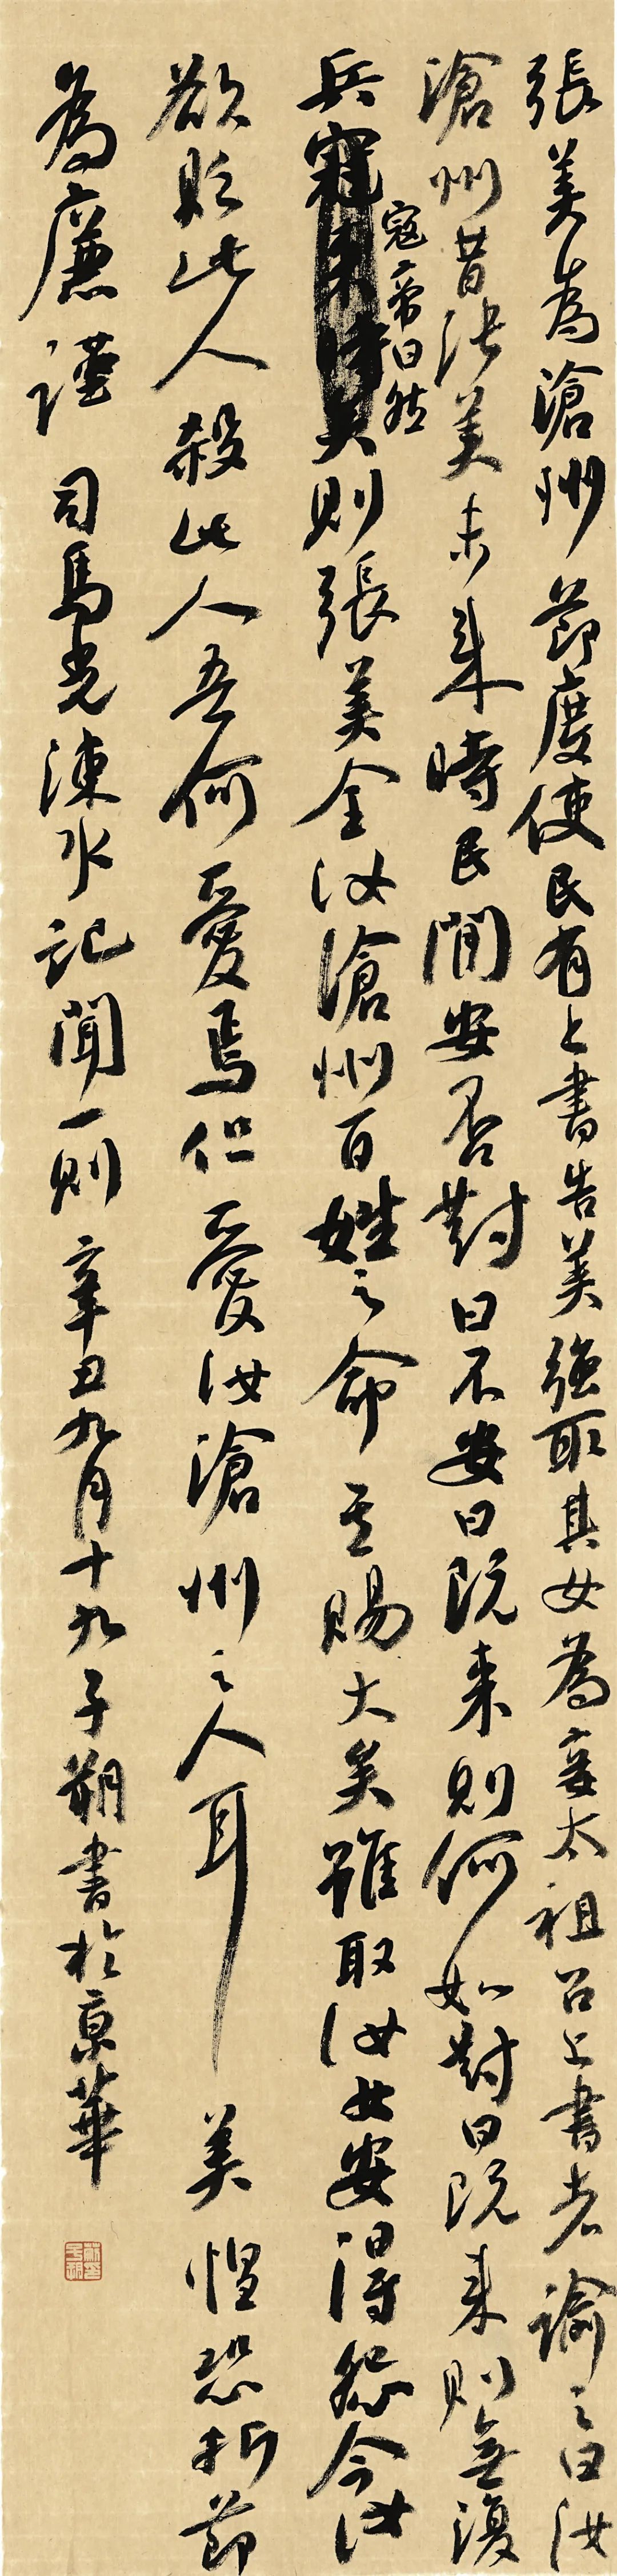 張美為滄州節度使民有上書告美強取其女為妾太祖召上書者諭之曰汝
滄州昔張美未來時民間安否對曰不安曰既來則何如對曰既來則無復
兵寇
寇帝曰然
則張美全汝滄州百姓之命其賜大矣雖取汝女安得怨今汝
欲貶此人殺此人吾何愛焉但愛汝滄州之人耳美惶恐折節
為廉謹 司馬光涑水記聞一則 辛丑九月十九子朔書於京華